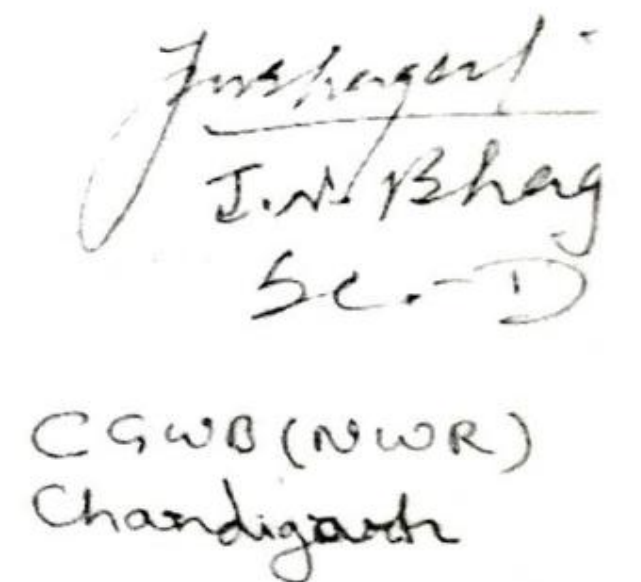 J.N. Bhag
Sc.-D
CGWB (NWR)
Chandigarh